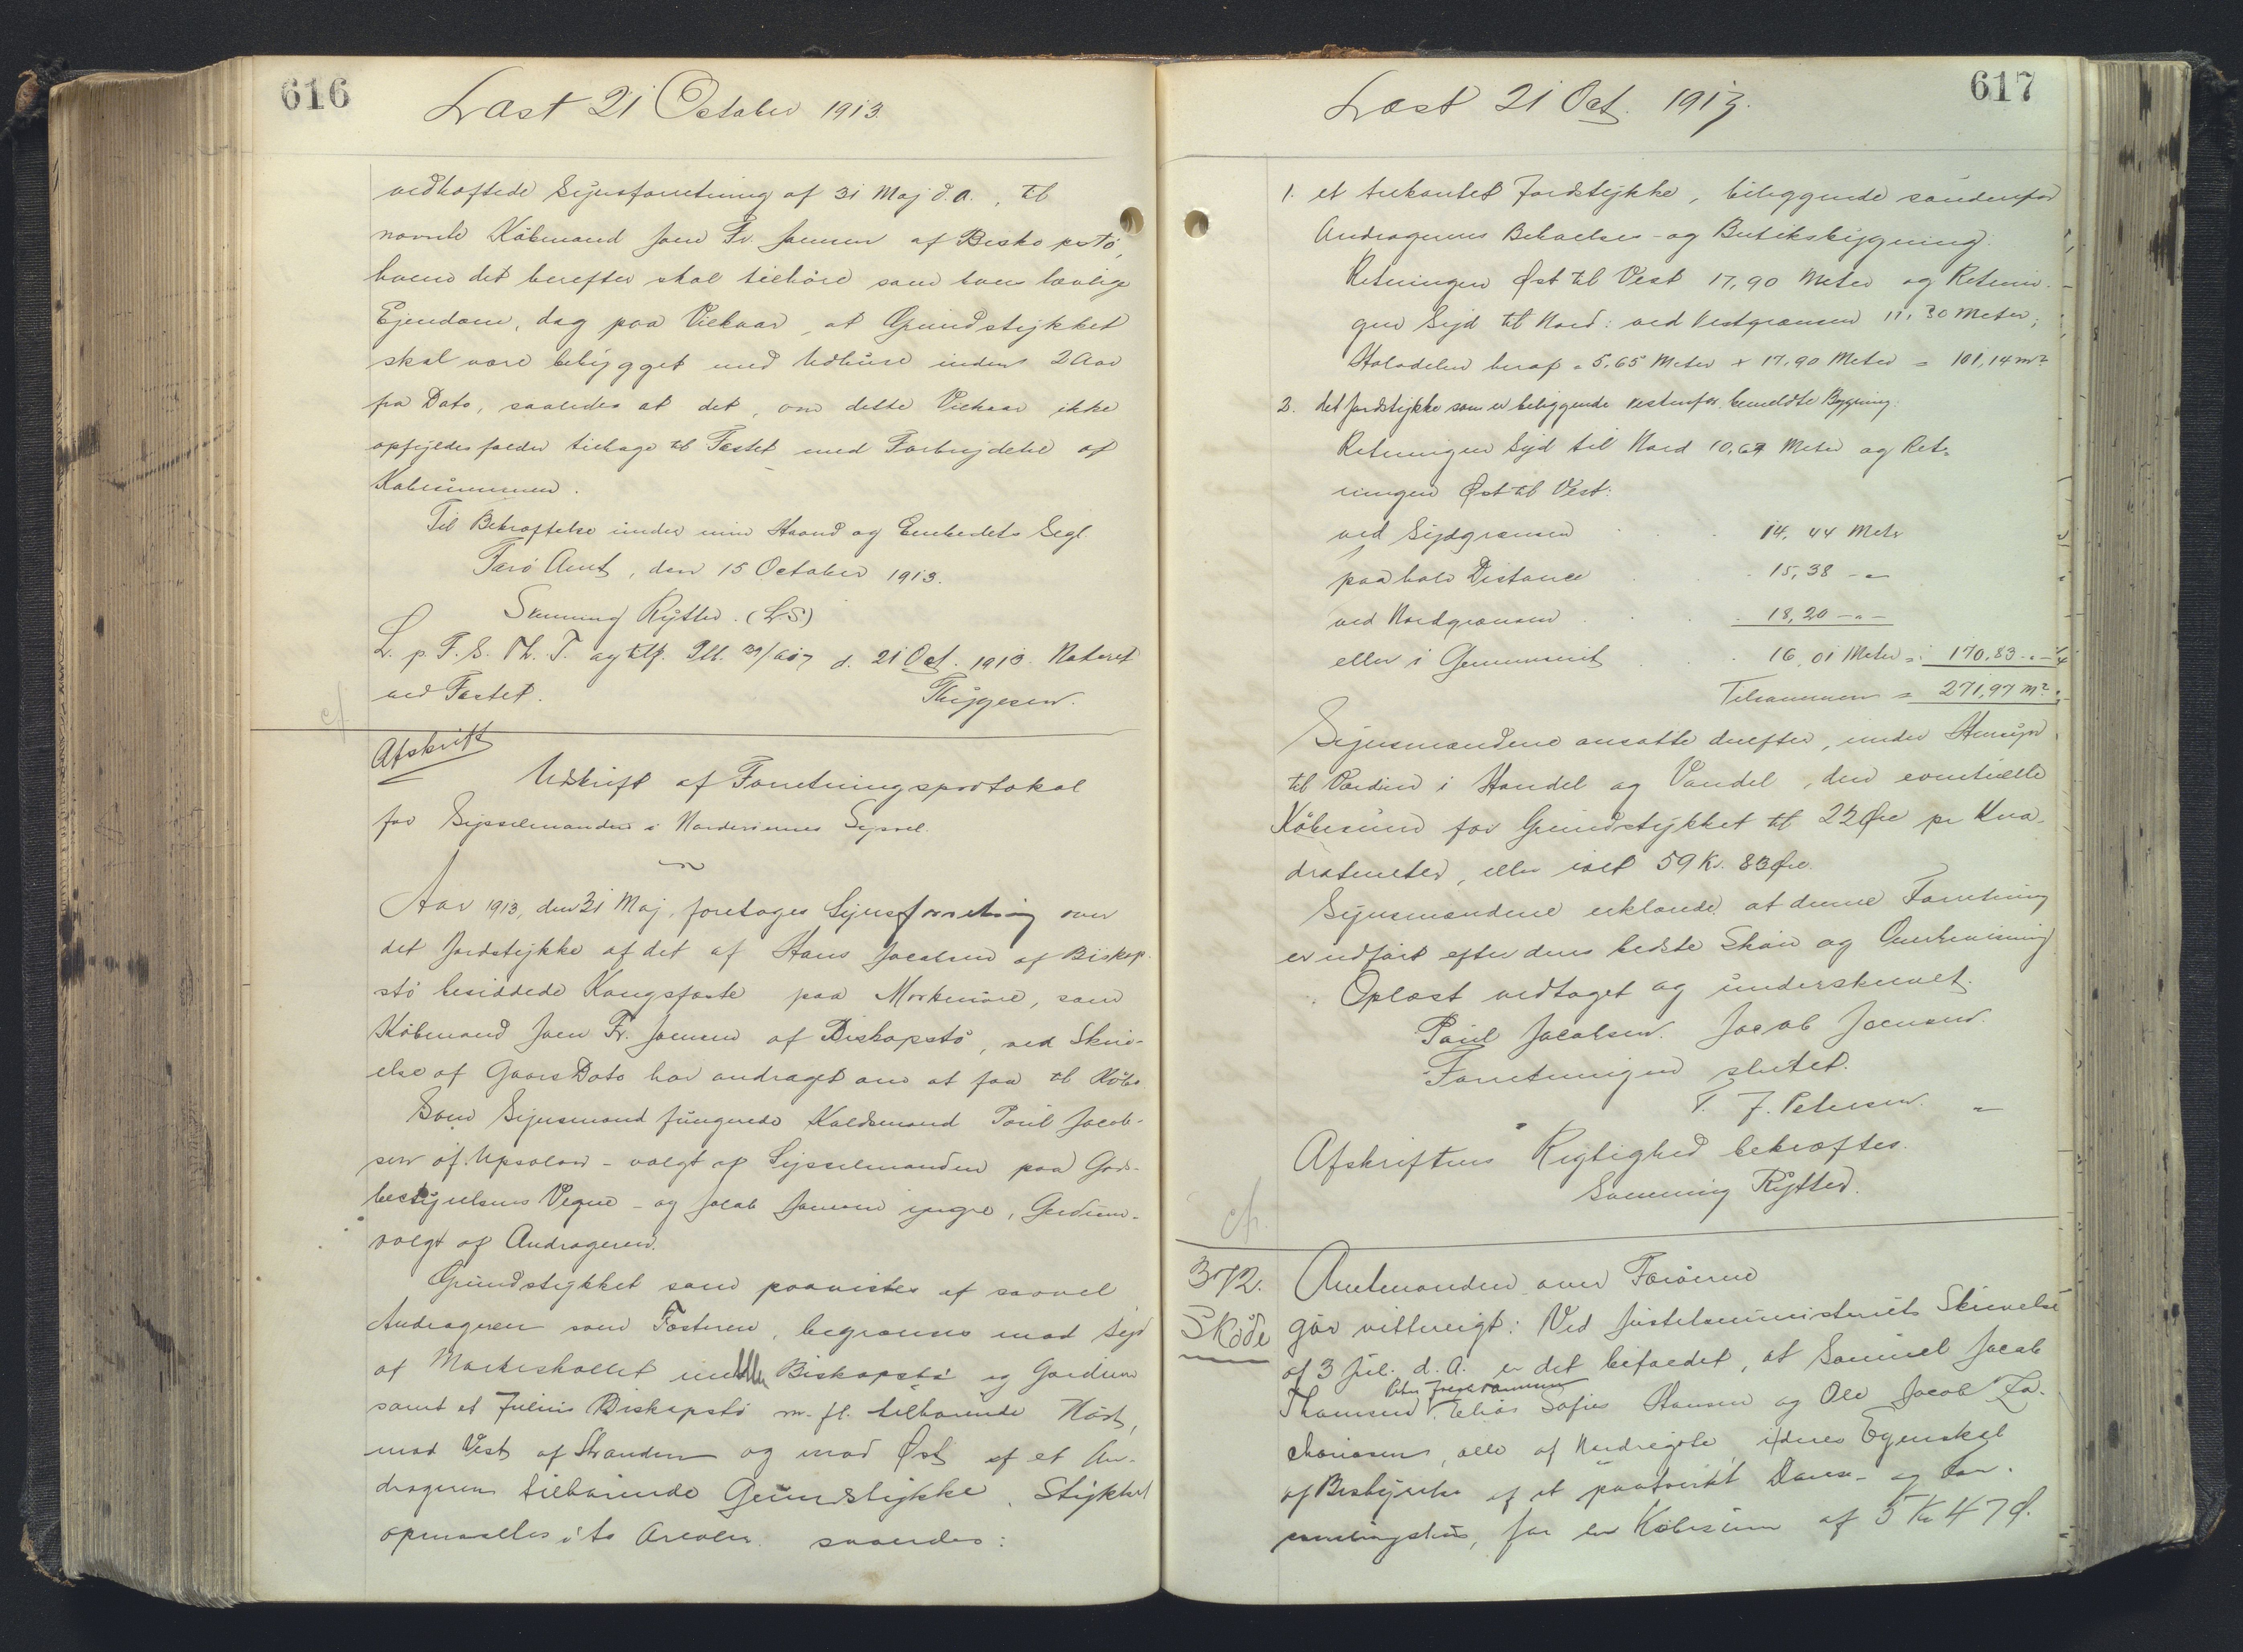 616
Læst 21 October 1913.
vedhæftede Synsforretning af 31 Maj d.A., til
nævnte Købmand Joen Fr. Joensen af Biskopstø,
hvem det herefter skal tilhøre som hans lovlige
Ejendom, dog paa Vilkaar, at Grundstykket
skal være bebygget med Udhuse inden 2 Aar
fra Dato, saaledes at det, om dette Vilkaar ikke
opfyldes falder tilbage til Fæstet med Fortrydelse af
Købesummen.
Til Bekræftelse under min Haand og Embedets Segl.
Færø Amt, den 15 October 1913.
Svenning Rytter. (L.S.)
L. p. F. S. Th. T. og tlf. Plb. d. 21 Oct. 1913. Noteret
ved Fæstet. Thygesen.
cf
Afskrift
Udskrift af Forretningsprotokol
for Sysselmanden i Norderøernes Syssel.
Aar 1913, den 31 Maj, foretoges Synsforretning over
det Jordstykke af det af Hans Jacobsen af Biskop-
stø besiddede Kongsfæste paa Morkenøre, som
Købmand Joen Fr. Joensen af Biskopstø, ved Skriv-
else af Gaars Dato har andraget om at faa til Købs.
Som Synsmænd fungerede Kaldsmand Poul Jacob-
sen af Upsølom - valgt af Sysselmanden paa Gods-
bestyrelsens Vegne - og Jacob Joensen yngre, Gerdum
valgt af Andrageren.
Grundstykket som paavistes af saavel
Andrageren som Fæsteren, begrænses mod Syd
af Markeskellet imellem Biskopstø og Gerdum
samt et Julius Biskopstø m. fl. tilhørende Nøst,
mod Vest af Stranden og mod Øst af et An-
drageren tilhørende Grundstykke. Stykket
opmaaltes i to Arealer saaledes:
617
Læst 21 Oct. 1913.
1. et trekantet Jordstykke, beliggende søndenfor
Andragerens Beboelses- og Butiksbygning.
Retningen Øst til Vest 17,90 Meter og Retnin-
gen Syd til Nord: ved Vestgrænsen 11,30 Meter;
Halvdelen heraf = 5,65 Meter x 17,90 Meter = 101,14 m²
2. det Jordstykke som er beliggende vestenfor bemeldte Bygning.
Retningen Syd til Nord 10,67 Meter og Ret-
ningen Øst til Vest:
ved Sydgrænsen 14,44 Meter
paa halv Distance 15,38 -"-
ved Nordgrænsen 18,20 -"-
eller i Gennemsnit 16,01 Meter = 170,83 -"-
Tilsammen = 271,97 m².
Synsmændene ansatte derefter, under Hensyn
til Værdien i Handel og Vandel, den eventuelle
Købesum for Grundstykket til 22 Øre pr Kva-
dratmeter, eller ialt 59 Kr. 83 Øre.
Synsmændene erklærede at denne Forretning
er udført efter deres bedste Skøn og Overbevisning
Oplæst vedtaget og underskrevet.
Poul Jacobsen. Jacob Joensen.
Forretningen sluttet.
T. J. Petersen.
Afskriftens Rigtighed bekræftes.
Svenning Rytter.
cfr.
372.
Skøde
Amtmanden over Færøerne
gør vitterligt: Ved Justitsministeriets Skrivelse
af 3 Jul. d.A. er det bifaldet, at Samuel Jacob
Thomsen, Elias Sofus Hansen og Ole Jacob Za-
chariasen, alle af Nordregøte i deres Egenskab
af Bestyrelse af et paatænkt Danse- og For-
samlingshus, for en Købesum af 5 Kr 47 Ø.